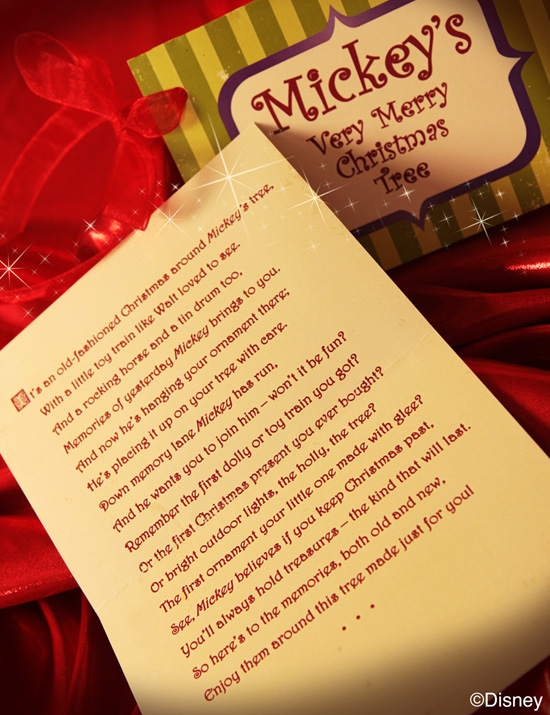 Mickey's
Very Merry
Christmas
Tree
It's an old-fashioned Christmas around Mickey's tree,
With a little toy train like Walt loved to see.
And a rocking horse and a tin drum too,
Memories of yesterday Mickey brings to you.
And now he's hanging your ornament there;
He's placing it up on your tree with care.
Down memory lane Mickey has run,
And he wants you to join him – won't it be fun?
Remember the first dolly or toy train you got?
Or the first Christmas present you ever bought?
Or bright outdoor lights, the holly, the tree?
The first ornament your little one made with glee?
See, Mickey believes if you keep Christmas past,
You'll always hold treasures – the kind that will last.
So here's to the memories, both old and new,
Enjoy them around this tree made just for you!
• • •
©Disney